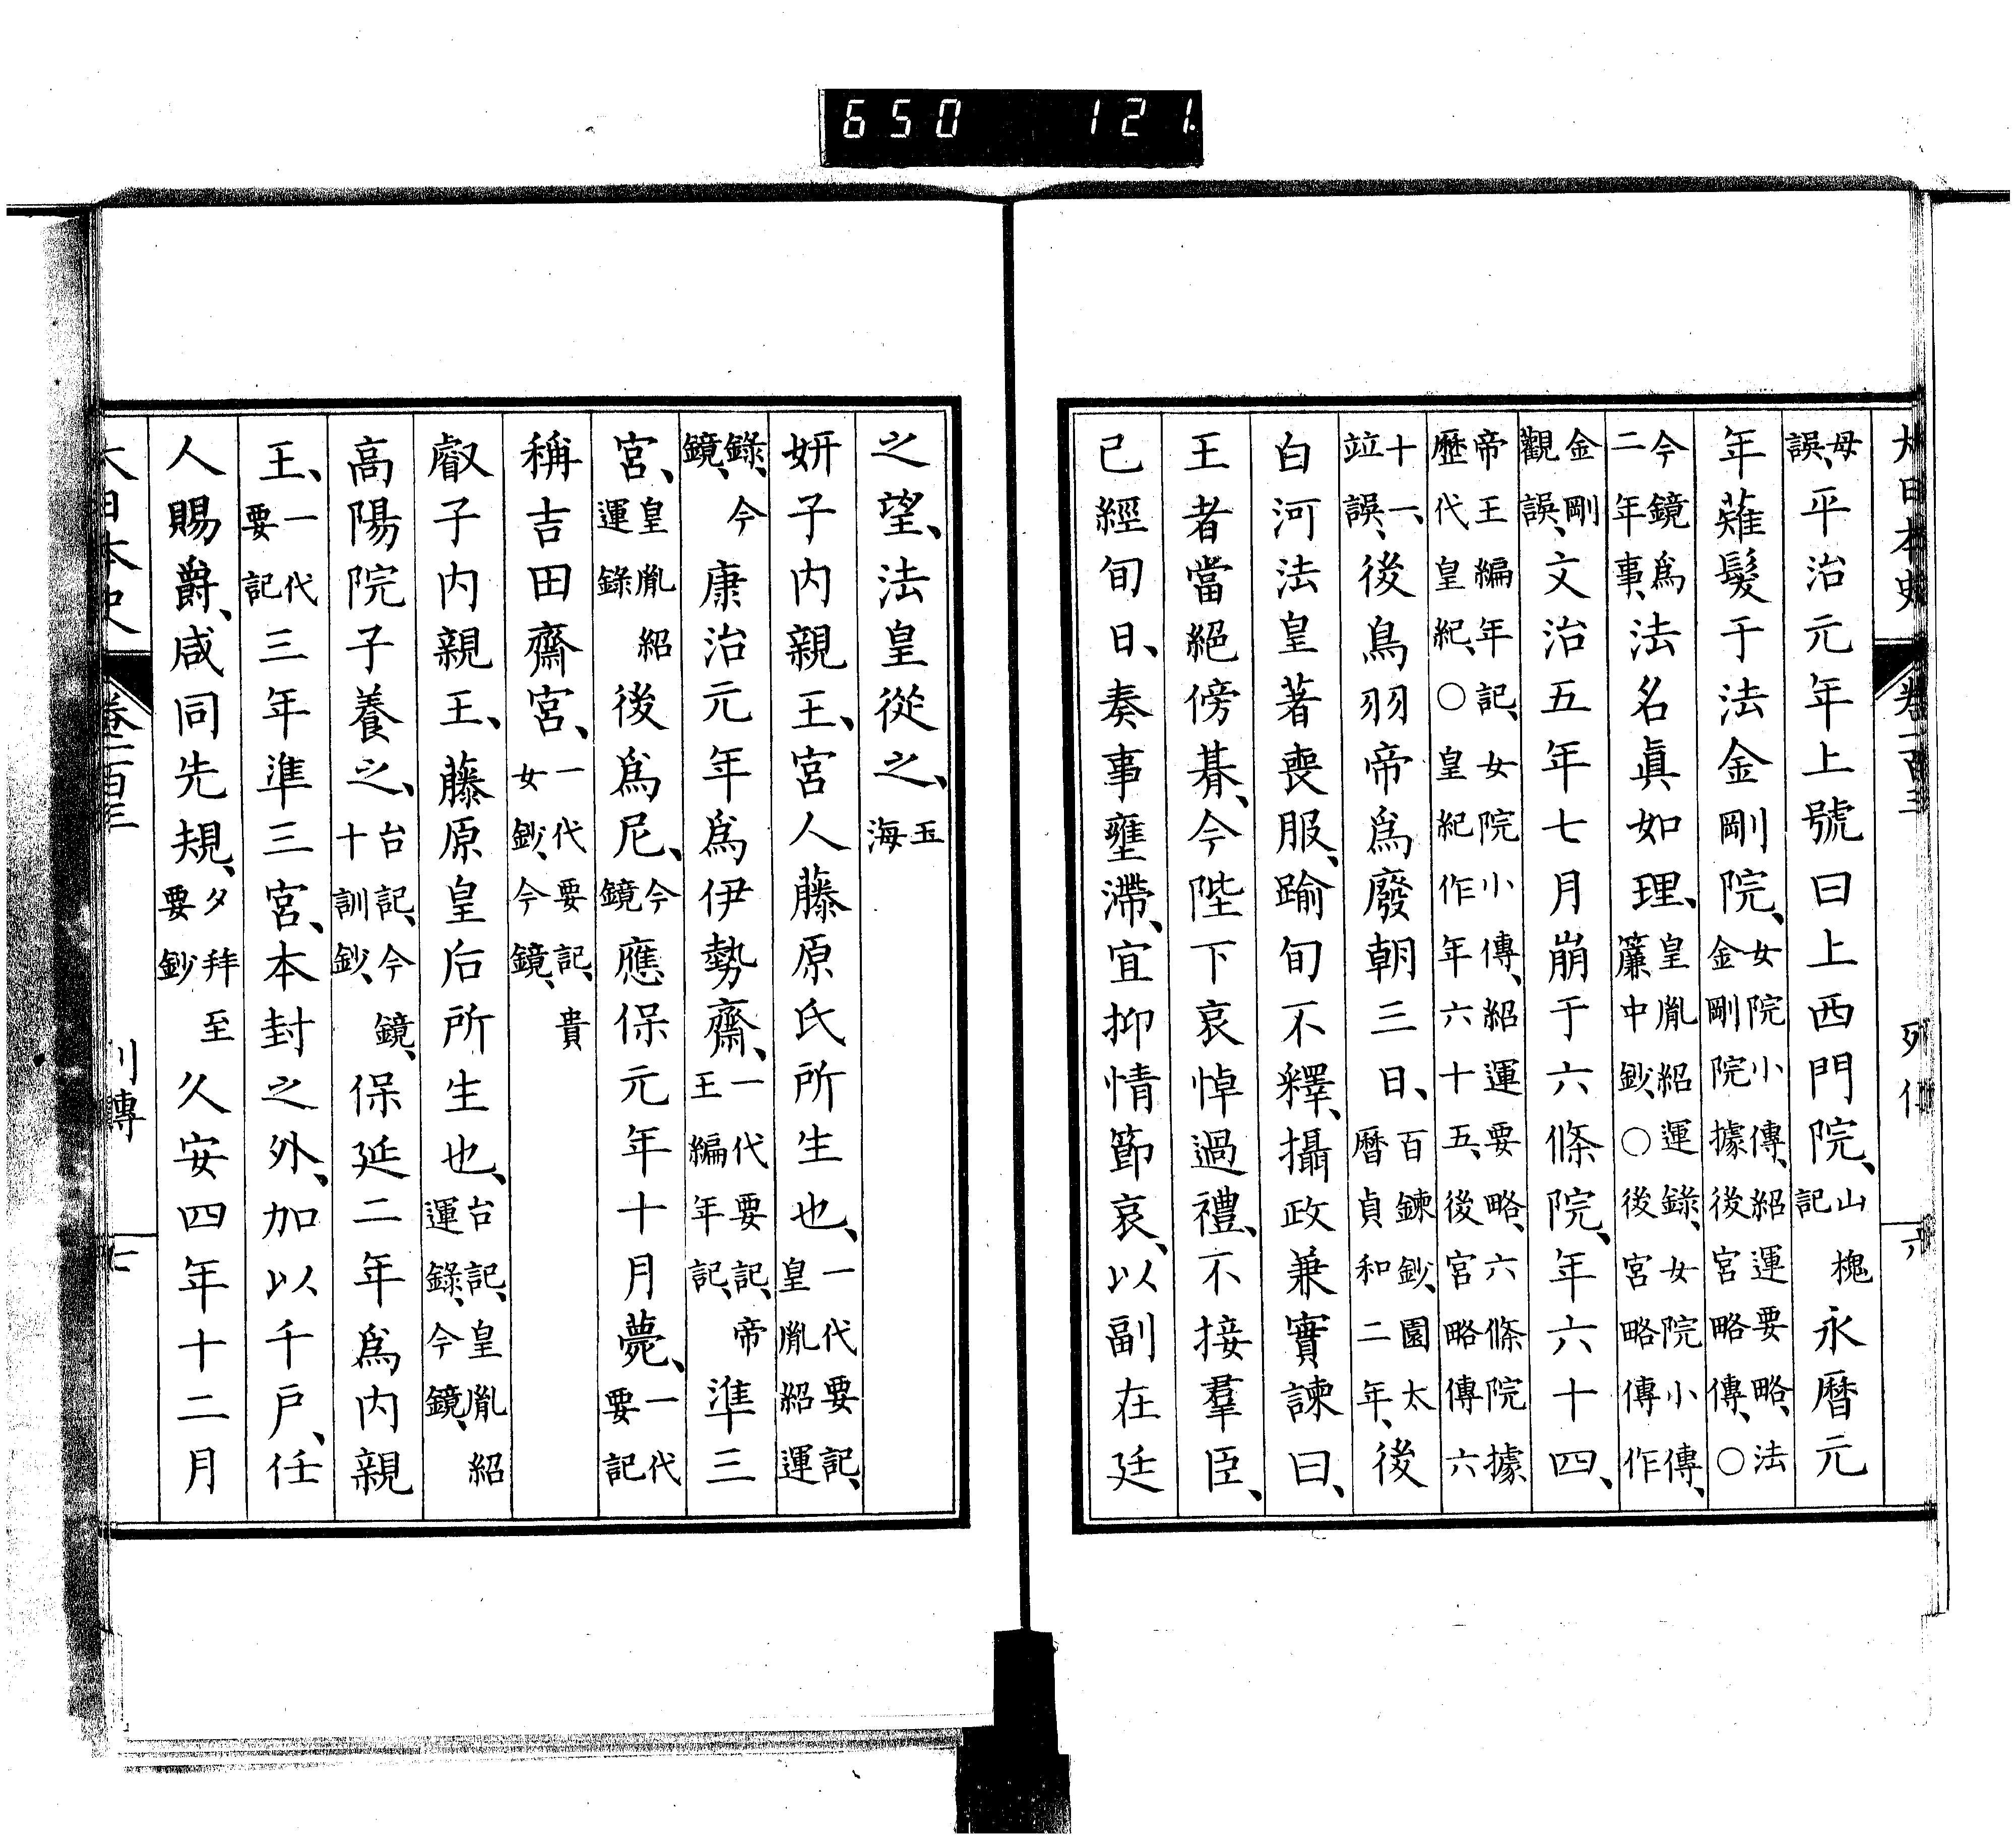 大日本史 卷一百三 列傳 六
母誤、平治元年上號曰上西門院、山槐記永曆元
年薙髮于法金剛院、女院小傳、紹運要略、法金剛院據後宮略傳、○
今鏡爲二年事、法名眞如理、皇胤紹運錄、女院小傳、簾中鈔、○後宮略傳作
金剛觀誤、文治五年七月崩于六條院、年六十四、
帝王編年記、女院小傳、紹運要略、六條院據歷代皇紀、○皇紀作年六十五、後宮略傳六
十一、竝誤、後鳥羽帝爲廢朝三日、百鍊鈔、園太曆貞和二年、後
白河法皇著喪服、踰旬不釋、攝政兼實諫曰、
王者當絕傍朞、今陛下哀悼過禮、不接羣臣、
已經旬日、奏事壅滯、宜抑情節哀、以副在廷
之望、法皇從之、玉海
妍子内親王、宮人藤原氏所生也、一代要記、皇胤紹運
錄、今鏡、康治元年爲伊勢齋、一代要記、帝王編年記、準三
宮、皇胤紹運錄後爲尼、今鏡應保元年十月薨、一代要記
稱吉田齋宮、一代要記、貴女鈔、今鏡、
叡子内親王、藤原皇后所生也、台記、皇胤紹運錄、今鏡、
高陽院子養之、台記、今鏡、十訓鈔、保延二年爲内親
王、一代要記三年準三宮、本封之外、加以千戶、任
人賜爵、咸同先規、夕拜至要鈔久安四年十二月
大日本史 卷一百三 列傳 七
650 121